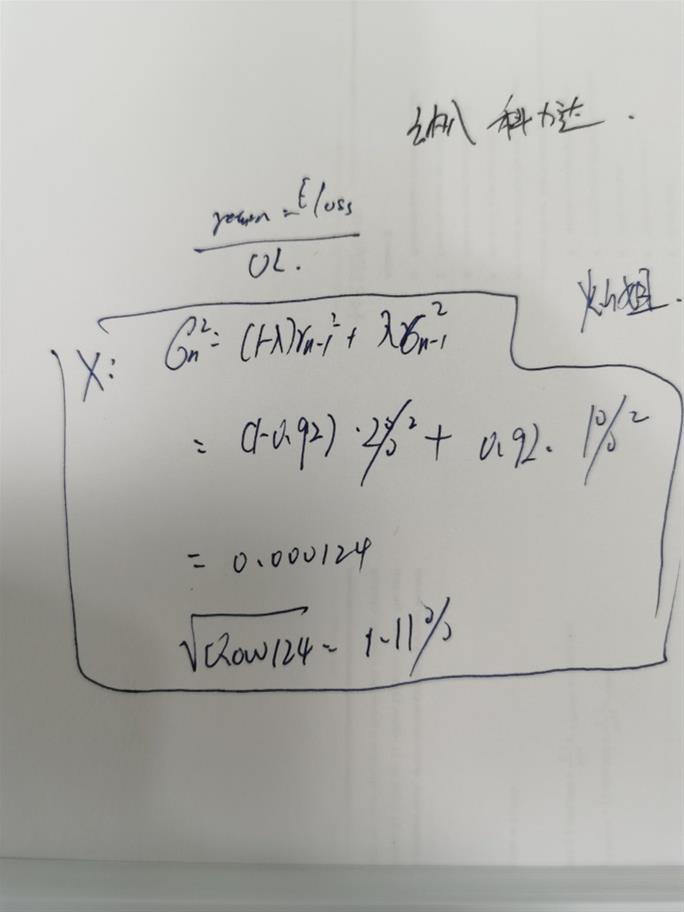 科技.
return - E loss
UL.
X: σn²= (1-λ)rn-1² + λσn-1²
= (1-0.92) · 2%² + 0.92 · 1%²
= 0.000124
√0.000124 = 1.11%